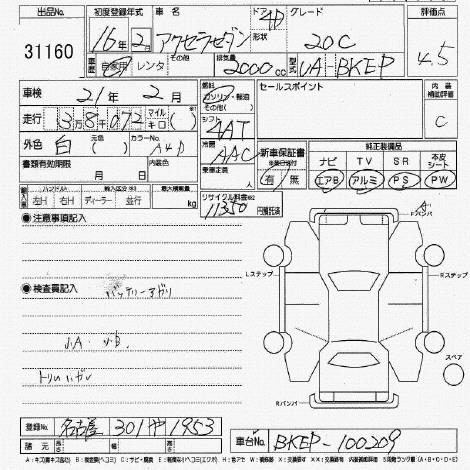 出品No. 31160
初度登録年式 16年2月
車名 アクセラセダン
ドア 4D 形状
グレード 20C
評価点 4.5
車歴 自家用 レンタ その他
排気量 2000cc
型式 UA-BKEP
車検 21年2月
走行 38072 マイル キロ
外色 白 元色( ) カラーNo. A4D
書類有効期限 月 日
内装色
燃料 ガソリン・軽油 その他( )
シフト 4AT
冷房 AAC
乗車定員 人
セールスポイント
内装補助評価 C
新車保証書 有 無
純正装備品
ナビ TV SR 本皮シート
エアB アルミ PS PW
輸入車 ハンドル 左H 右H ディーラー 並行
最大積載量 kg
リサイクル料金 11350 円預託済
注意事項記入
検査員記入
バッテリーアガリ
小A・小B
Fバンパ
Lステップ
Rステップ
スペア
Rバンパ
登録No. 名古屋 301 や 1953
諸元 長さ 幅 高さ
車台No. BKEP-100209